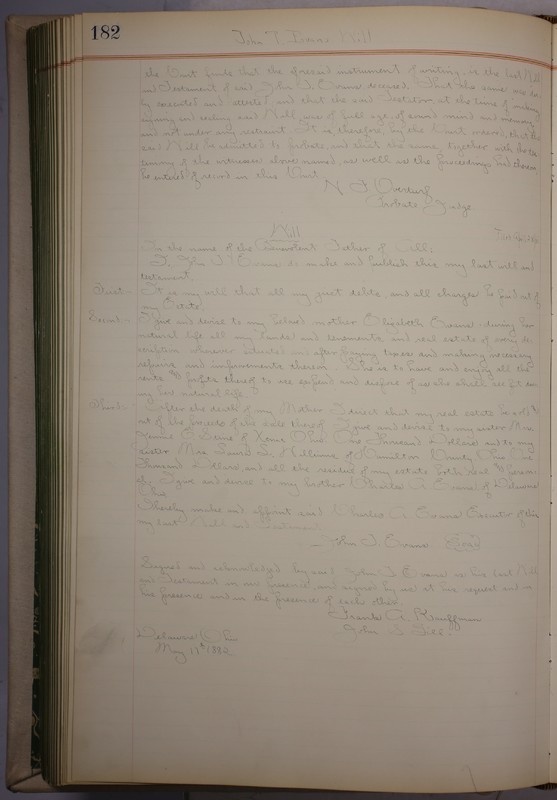 182
John T. Evans Will
the Court finds that the aforesaid instrument of writing, is the last Will
and Testament of said John T. Evans deceased. That the same was du-
ly executed and attested and that the said Testator at the time of making
signing and sealing said Will, was of full age, of sound mind and memory
and not under any restraint. It is therefore, by the Court ordered, that the
said Will be admitted to probate, and that the same, together with the tes-
timony of the witnesses above named, as well as the proceedings had therein
be entered of record in this Court.
Probate Judge
Will
In the name of the Benevolent Father of All;
I, John T. Evans do make and publish this my last will and
testament.
First: It is my will that all my just debts, and all charges be paid out of
my Estate.
Second: I give and devise to my beloved mother Elizabeth Evans, during her
natural life all my lands and tenements and real estate of every de-
scription wherever situated on after paying taxes and making necessary
repairs and improvements thereon. She is to have and enjoy all the
rents & profits thereof to use expend and dispose of as she shall see fit during
my her natural life.
Third: After the death of my Mother I direct that my real estate be sold &
out of the proceeds of the sale thereof I give and devise to my sister Mrs.
of Xenia Ohio One Thousand Dollars and to my
sister Mrs. Williams of Hamilton County Ohio One
Thousand Dollars, and all the residue of my estate both real & person-
al, I give and devise to my brother Charles A. Evans of Delaware
Ohio.
I hereby make and appoint said Charles A. Evans Executor of this
my last Will and Testament.
John T. Evans Seal
Signed and acknowledged by said John T. Evans as his last Will
and Testament in our presence and signed by us at his request and in
his presence and in the presence of each other.
Frank A. Kauffman
John S.
Delaware Ohio
May 1882